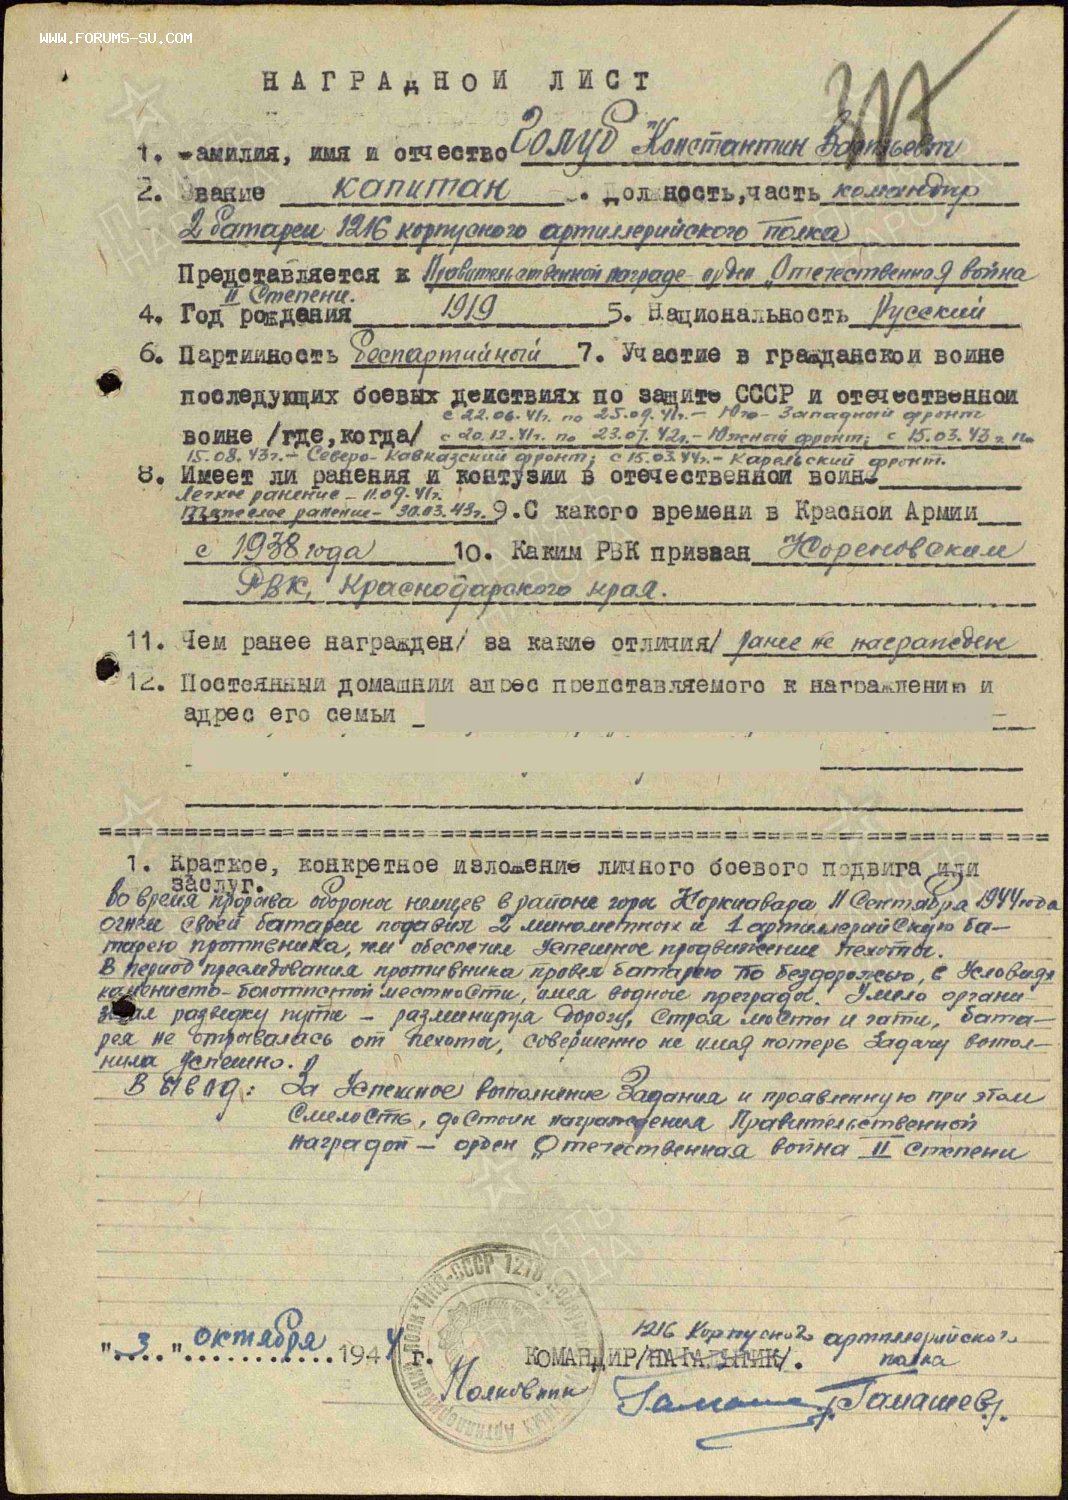 WWW.FORUMS-SU.COM
НАГРАДНОЙ ЛИСТ
1. Фамилия, имя и отчество Голуб Константин
2. Звание капитан 3. Должность, часть командир
2 батареи 1216 корпусного артиллерийского полка
Представляется к Правительственной награде – орден „Отечественная война
II Степени.
4. Год рождения 1919 5. Национальность Русский
6. Партийность Беспартийный 7. Участие в гражданской войне
последующих боевых действиях по защите СССР и отечественной
с 22.06.41г. по 25.09.41г. – Юго-Западный фронт
войне /где, когда/ с 20.12.41г. по 23.07.42г. – Южный фронт; с 15.03.43г. по
15.08.43г. – Северо-Кавказский фронт; с 15.03.44г. – Карельский фронт.
8. Имеет ли ранения и контузии в отечественной войне
Легкое ранение – 11.09.41г.
Тяжелое ранение – 30.03.43г. 9. С какого времени в Красной Армии
с 1938 года 10. Каким РВК призван Кореновским
РВК, Краснодарского края.
11. Чем ранее награжден/ за какие отличия/ ранее не награжден
12. Постоянный домашний адрес представляемого к награждению и
адрес его семьи
1. Краткое, конкретное изложение личного боевого подвига или
заслуг.
Во время прорыва обороны немцев в районе горы Коркиавара 11 Сентября 1944 года
огнем своей батареи подавил 2 минометных и 1 артиллерийскую ба-
тарею противника, чем обеспечил успешное продвижение пехоты.
В период преследования противника провел батарею по бездорожью, в условиях
каменисто-болотистой местности, имея водные преграды. Умело органи
зовал разведку пути – разминируя дорогу, строя мосты и гати, бата-
рея не отрывалась от пехоты, совершенно не имея потерь задачу выпол-
нила успешно.
Вывод: За успешное выполнение задания и проявленную при этом
смелость, достоин награждения Правительственной
наградой – орден „Отечественная война II степени
"3" октября 1944 г.
1216 Корпусного артиллерийского
КОМАНДИР/НАЧАЛЬНИК/. полка
Полковник Гамашев